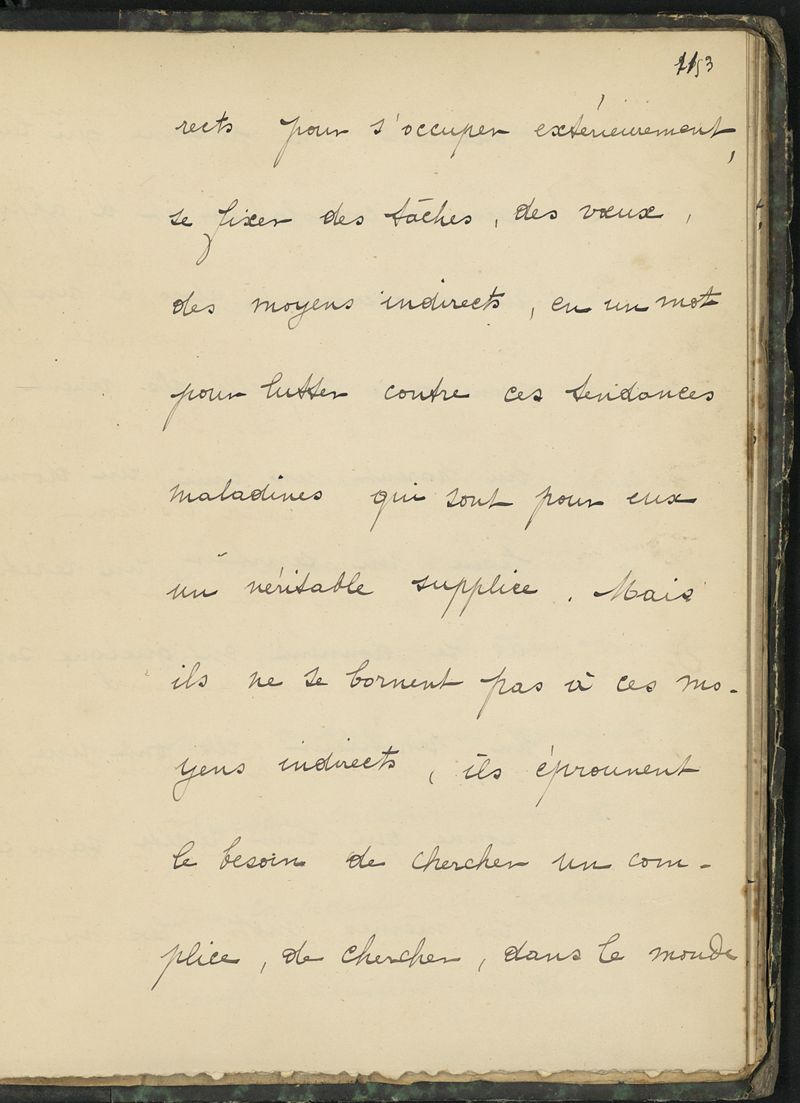 rects pour s'occuper extérieurement,
se fixer des tâches, des vœux,
des moyens indirects, en un mot
pour lutter contre ces tendances
maladives qui sont pour eux
un véritable supplice. Mais
ils ne se bornent pas à ces mo-
yens indirects, ils éprouvent
le besoin de chercher un com-
plice, de chercher, dans le monde